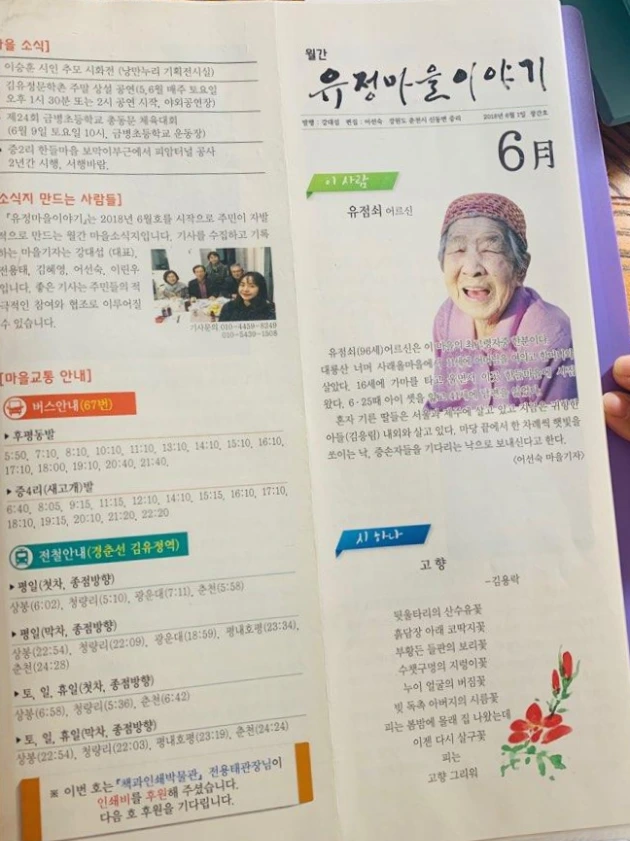 을 소식]
이승훈 시인 추모 시화전 (낭만누리 기획전시실)
김유정문학촌 주말 상설 공연(5,6월 매주 토요일
오후 1시 30분 또는 2시 공연 시작, 야외공연장)
제24회 금병초등학교 총동문 체육대회
(6월 9일 토요일 10시, 금병초등학교 운동장)
▸ 증2리 한들마을 보막이부근에서 피암터널 공사
2년간 시행, 서행바람.
소식지 만드는 사람들]
『유정마을이야기』는 2018년 6월호를 시작으로 주민이 자발
적으로 만드는 월간 마을소식지입니다. 기사를 수집하고 기록
하는 마을기자는 강대섭 (대표),
전용태, 김혜영, 어선숙, 이민우
입니다. 좋은 기사는 주민들의 적
극적인 참여와 협조로 이루어질
수 있습니다.
기사문의 010-4459-8249
010-5439-1508
[마을교통 안내]
버스안내(67번)
▸후평동발
5:50, 7:10, 8:10, 10:11, 10:10, 13:10, 14:10, 15:10, 16:10,
17:10, 18:00, 19:10, 20:40, 21:40,
▸증4리(새고개)발
6:40, 8:05, 9:15, 11:15, 12:10, 14:10, 15:15, 16:10, 17:10,
18:10, 19:15, 20:10, 21:20, 22:20
전철안내(경춘선 김유정역)
▸평일(첫차, 종점방향)
상봉(6:02), 청량리(5:10), 광운대(7:11), 춘천(5:58)
▸평일(막차, 종점방향)
상봉(22:54), 청량리(22:09), 광운대(18:59), 평내호평(23:34),
춘천(24:28)
▸토, 일, 휴일(첫차, 종점방향)
상봉(6:58), 청량리(5:36), 춘천(6:42)
▸토, 일, 휴일(막차, 종점방향)
상봉(22:54), 청량리(22:03), 평내호평(23:19), 춘천(24:24)
※ 이번 호는 『책과인쇄박물관』 전용태관장님이
인쇄비를 후원해 주셨습니다.
다음 호 후원을 기다립니다.
월간
유정마을이야기
발행 : 강대섭 편집 : 어선숙 강원도 춘천시 신동면 증리 2018년 6월 1일 창간호
6月
이 사람
유점쇠 어르신
유점쇠(96세)어르신은 이 마을의 최고령자중 한분이다.
대룡산 너머 사래울마을에서
살았다. 16세에 가마를 타고
왔다. 6·25때 아이 셋을
혼자 기른 딸들은 서울과 제주에 살고 있고 지금은 귀향한
아들(김응림) 내외와 살고 있다. 마당 끝에서 한 차례씩 햇빛을
쪼이는 낙, 증손자들을 기다리는 낙으로 보내신다고 한다.
〈어선숙 마을기자〉
시 하나
고 향
-김용락
뒷울타리의 산수유꽃
흙담장 아래 코딱지꽃
부황든 들판의 보리꽃
수챗구멍의 지렁이꽃
누이 얼굴의 버짐꽃
빚 독촉 아버지의 시름꽃
피는 봄밤에 몰래 집 나왔는데
이젠 다시 살구꽃
피는
고향 그리워